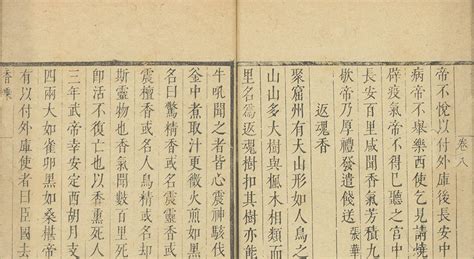 卷八
帝不悅以付外庫後長安中
病帝不舉樂西使乞見請燒
辟疫氣帝不得已聽之宮中
長安百里咸聞香氣芳積九
歇帝乃厚禮發遣餞送 張華
返魂香
聚窟州有大山形如人鳥之
山山多大樹與楓木相類而
里名為返魂扣其樹亦能
牛吼聞之者皆心震神駭伐
釜中煮取汁更微火煎如黑
名曰驚精香或名震
震檀香或名人鳥精或名
斯靈物也香氣聞數百里死
卽活不復亡也以香熏死人
三年武帝幸安定西胡月支
四兩大如雀卵黑如桑椹帝
有以付外庫使者曰臣國去
香乘